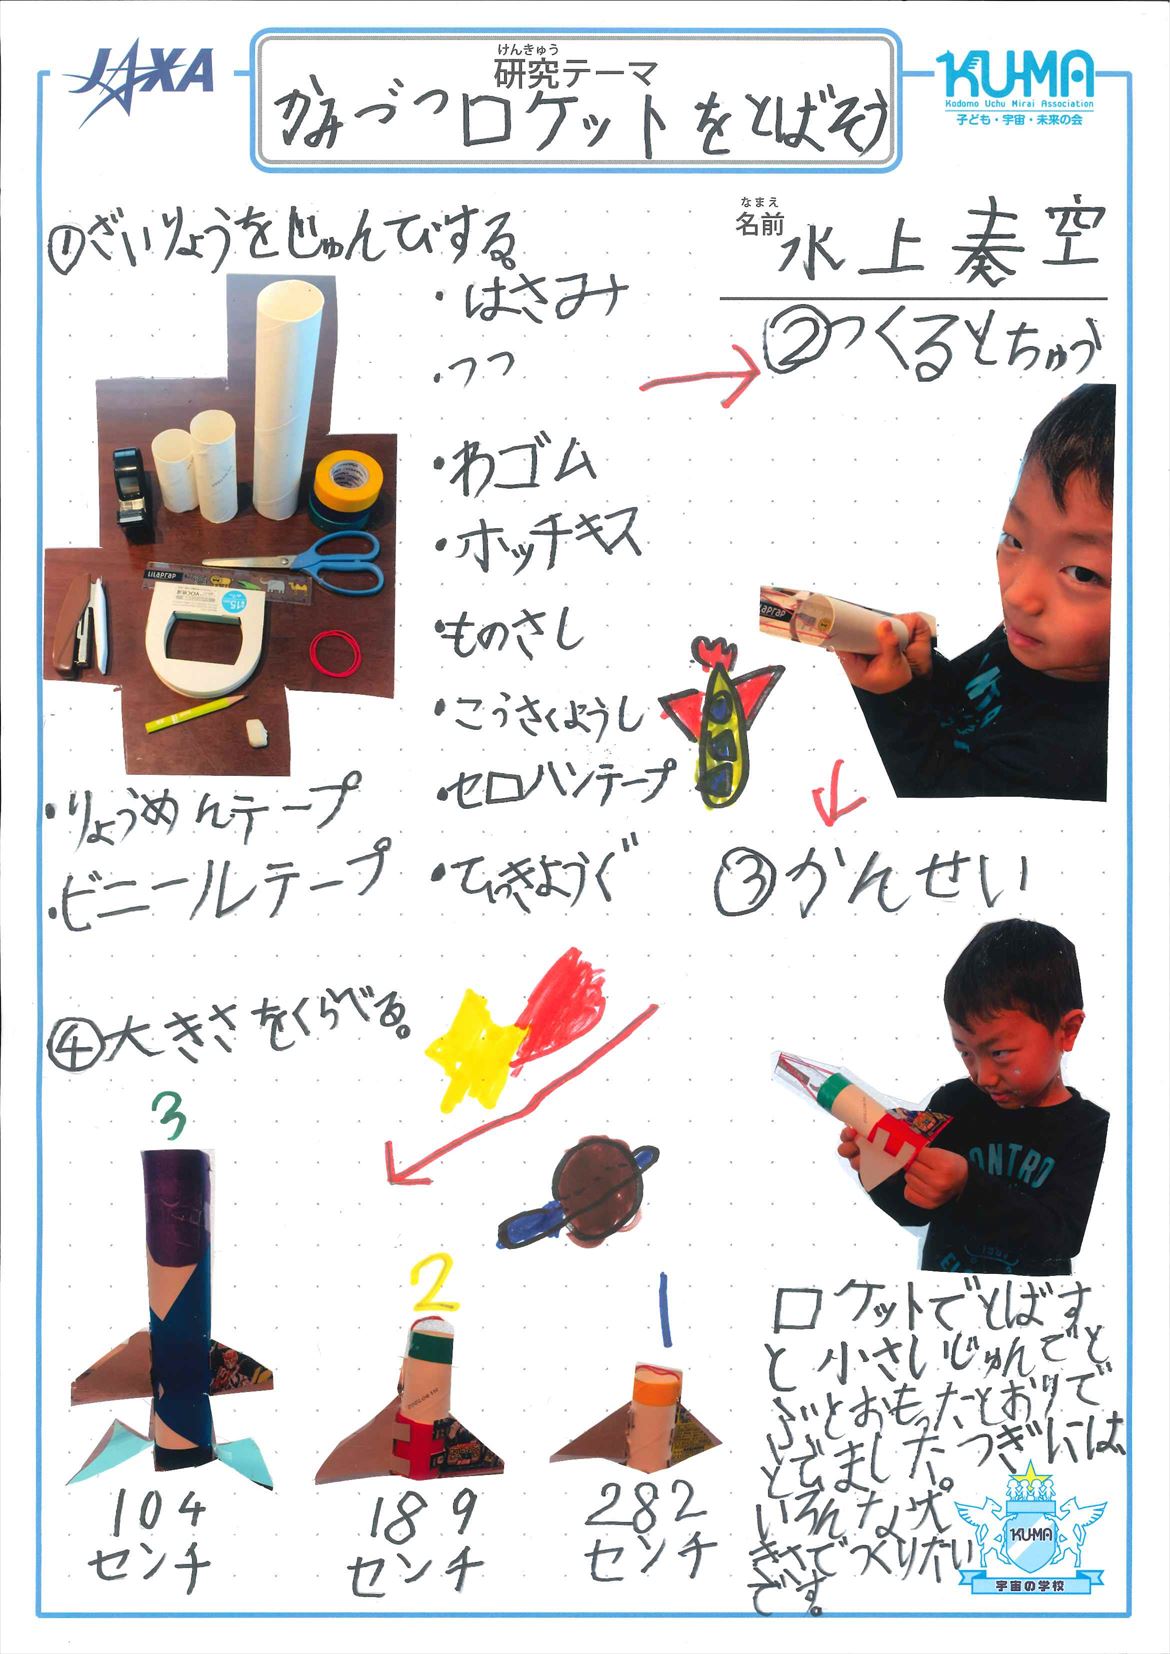 JAXA
けんきゅう
研究テーマ
かみづつロケットをとばそう
KU-MA
Kodomo Uchu Mirai Association
子ども・宇宙・未来の会
なまえ
名前 水上奏空
①ざいりょうをじゅんびする。
・はさみ
・つつ
・わゴム
・ホッチキス
・ものさし
・こうさくようし
・セロハンテープ
・ひっきようぐ
・りょうめんテープ
・ビニールテープ
LiLaPraP
②つくるとちゅう
LiLaPraP
③かんせい
ONTRO
④大きさをくらべる。
3
2
1
104
センチ
189
センチ
282
センチ
ロケットでとばす
と小さいじゅんでと
ぶとおもったとおりで
とでました。つぎには、
いろんな大
きさでつくりたい
です。
KU-MA
宇宙の学校